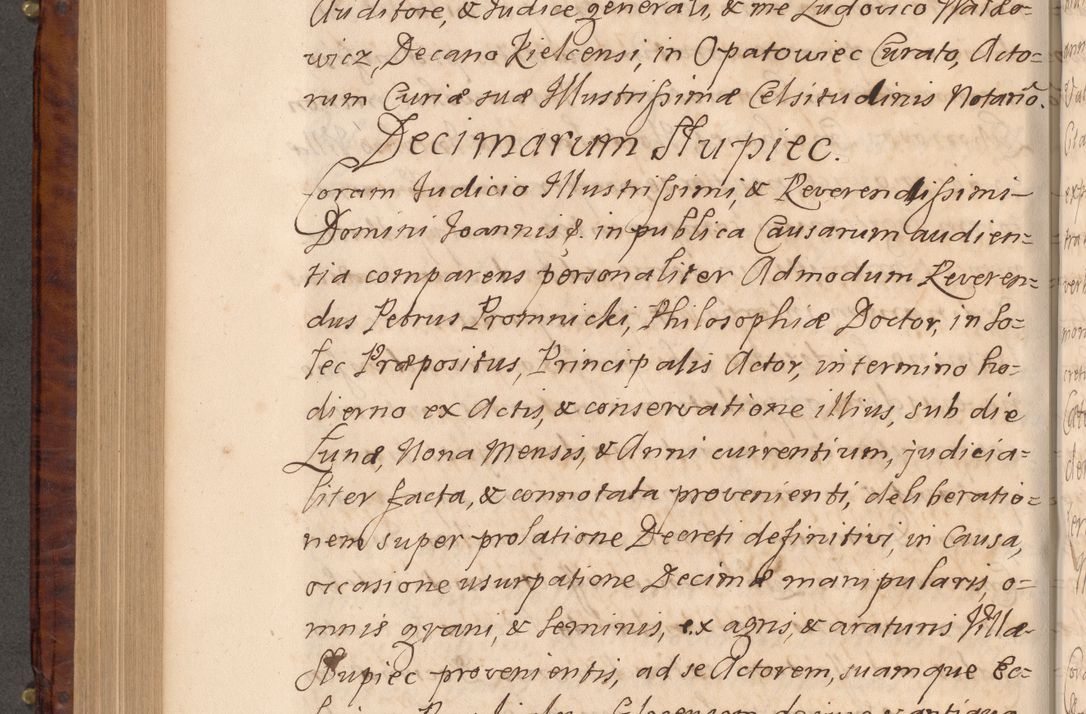 Auditore, & Judice generali, & me Ludovico Waldo-
wicz, Decano Kielcensi, in Opatowiec Curato, Acto=
rum Curiæ suæ Illustrissimæ Celsitudinis Notario.
Decimarum Stupiec.
Coram Judicio Illustrissimi, & Reverendissimi
Domini Joannis &. in publica Causarum audien=
tia comparens personaliter Admodum Reveren=
dus Petrus Promnicki, Philosophiæ Doctor, in So=
lec Præpositus, Principalis Actor, in termino ho=
dierno ex Actis, & conservatione illius, sub die
Lunæ, Nona Mensis, & Anni currentium, judicia=
liter facta, & connotata provenienti, deliberatio=
nem super prolatione Decreti definitivi, in Causa,
occasione usurpatione Decimæ manipularis, o=
mnis grani, & seminis, ex agris, & araturis Villæ
Stupiec provenientis, ad se Actorem, suamque Ec=